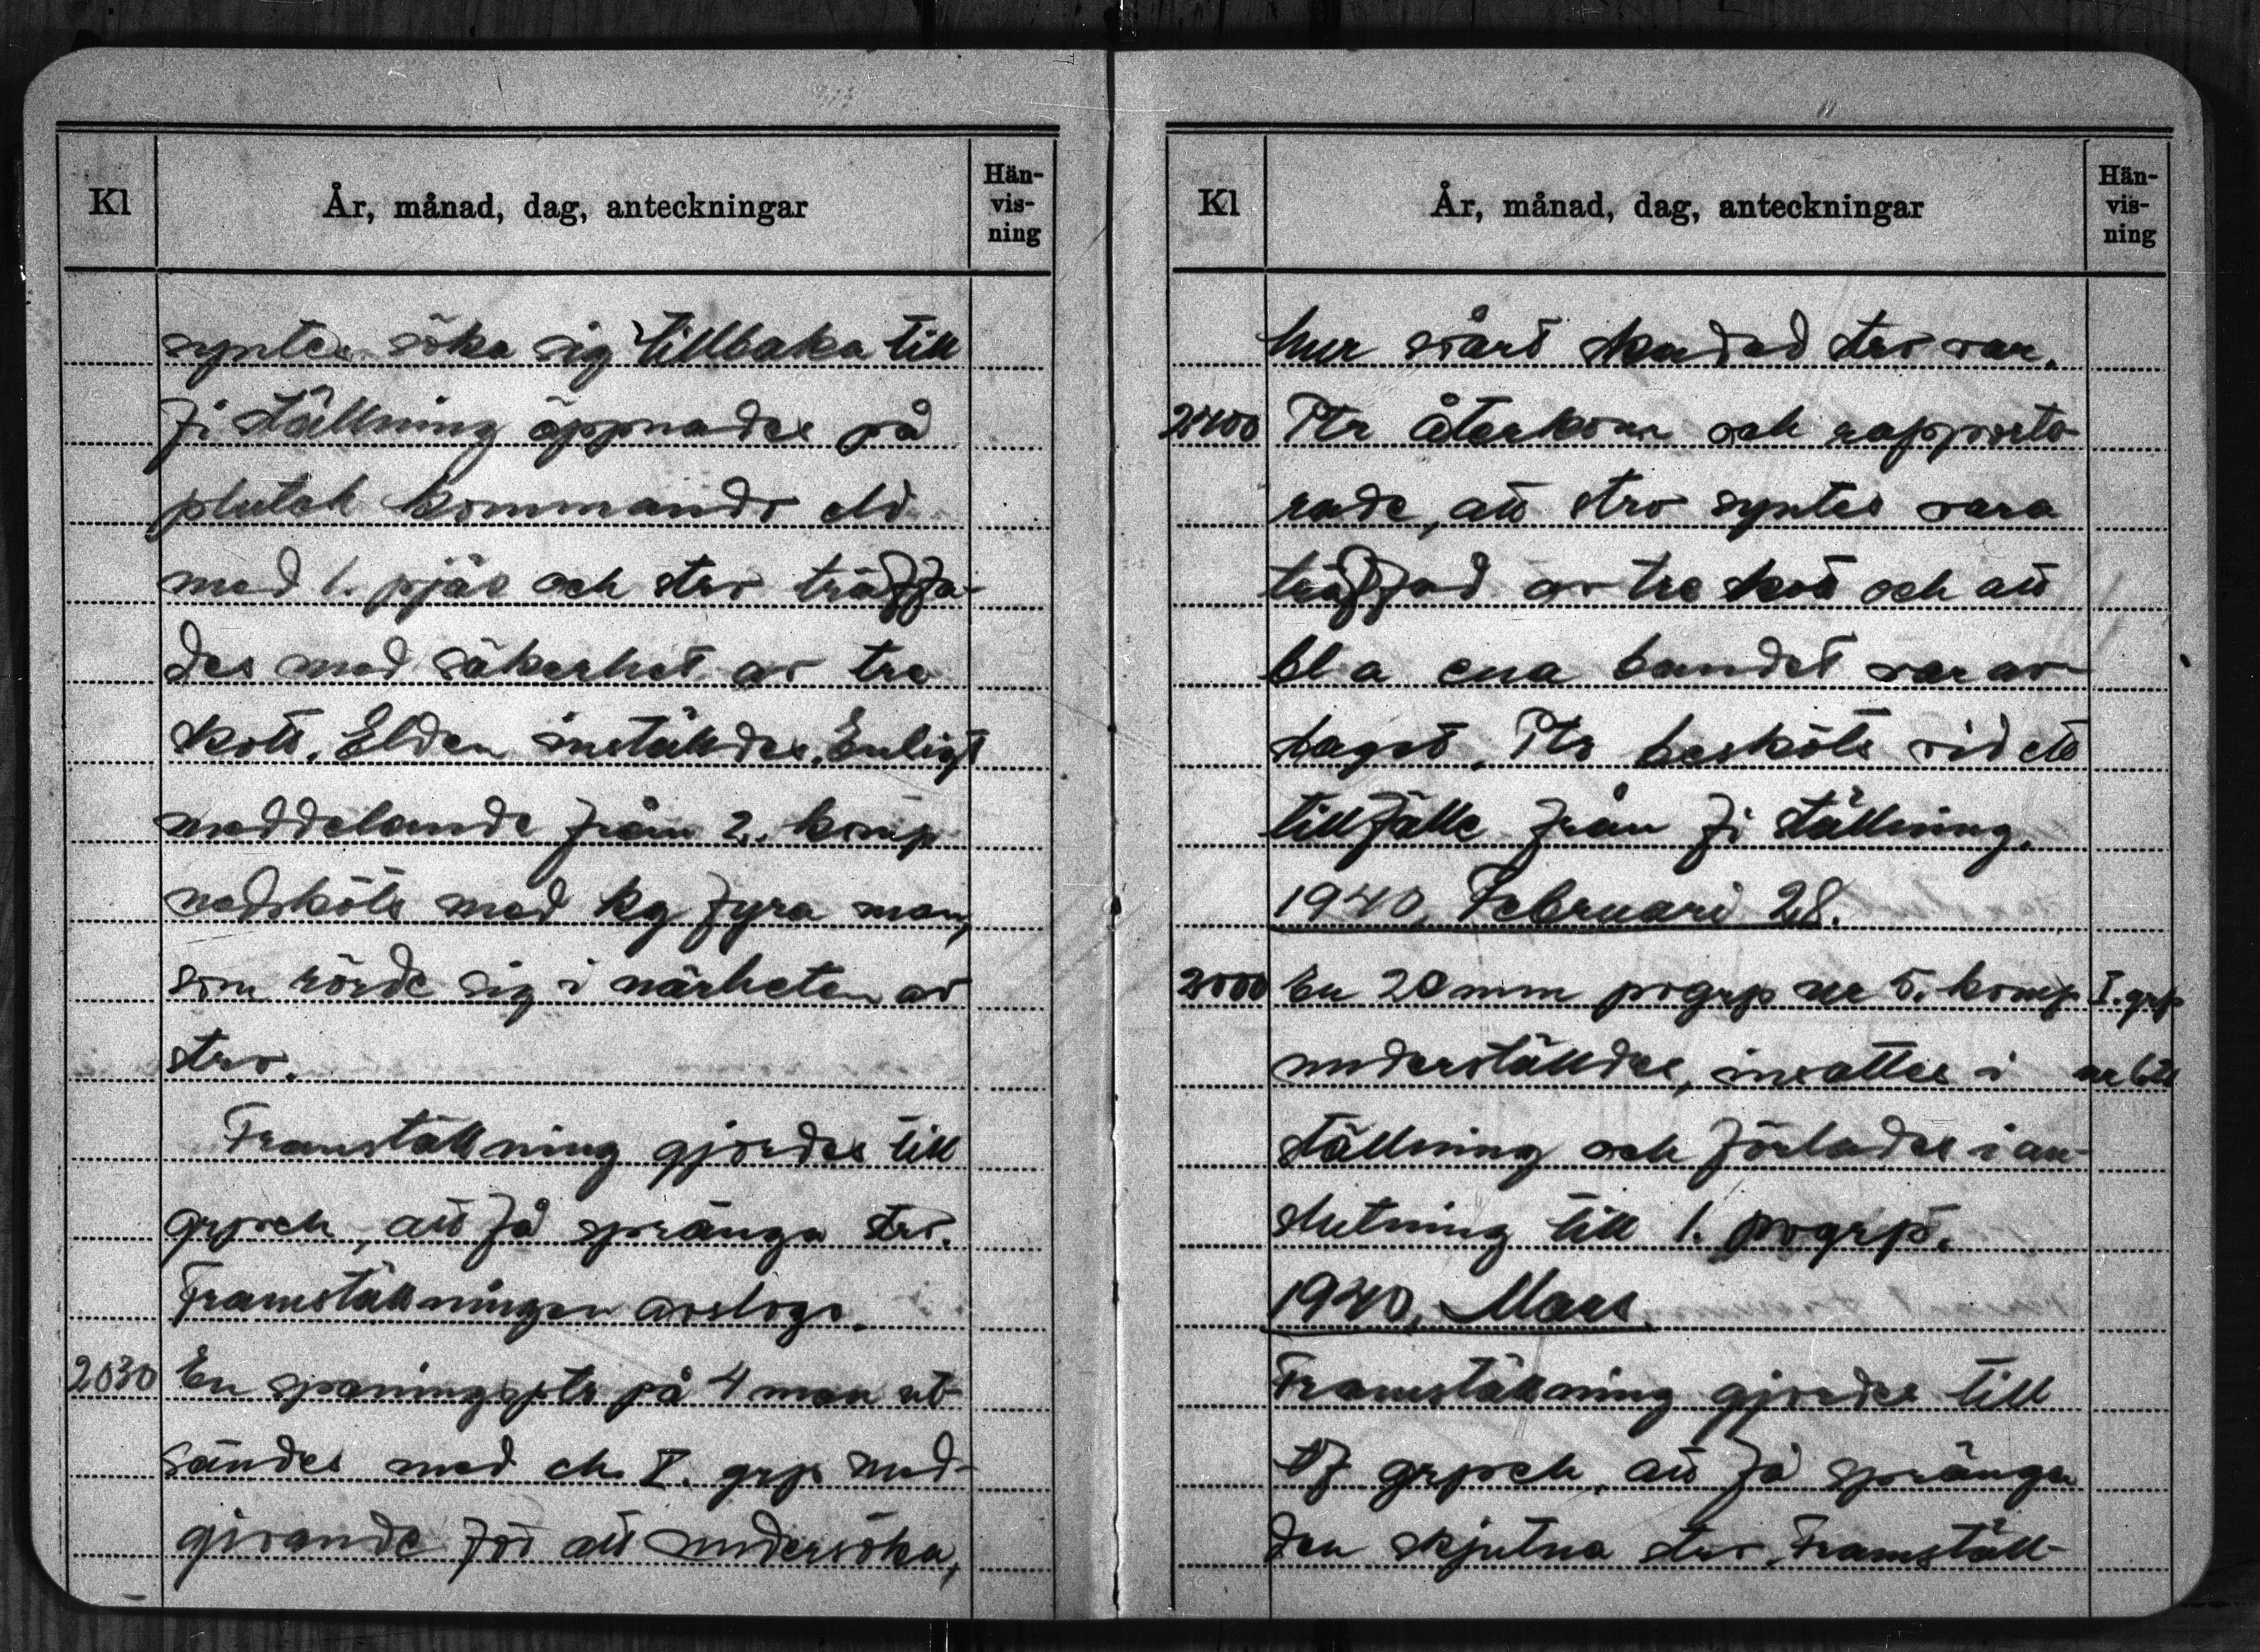 Kl
År, månad, dag, anteckningar
Hän-
vis-
ning
syntes söka sig tillbaka till
fi ställning öppnades på
plutch kommando eld
med 1. pjäs och strv träffa-
des med säkerhet av tre
skott. Elden inställdes. Enligt
meddelande från 2. komp
nedsköts med kg fyra man,
som rörde sig i närheten av
strv.
Framställning gjordes till
grpch, att få spränga strv.
Framställningen avslogs.
2030 En spaningsptr på 4 man ut-
sändes med ch I. grp med-
givande för att undersöka,
Kl
År, månad, dag, anteckningar
Hän-
vis-
ning
hur svårt skadad strv var.
2400 Ptr återkom och rapporte-
rade, att strv syntes vara
träffad av tre skott och att
bl a ena bandet var av-
slaget. Ptr besköts vid ett
tillfälle från fi ställning.
1940, Februari 28.
2000 En 20 mm pvgrp ur 5. komp I. grp
underställdes, insattes i
ställning och förlades i an-
slutning till 1. pvgrp.
1940, Mars.
Framställning gjordes till
tf grpch, att få spränga
den skjutna strv. Framställ-